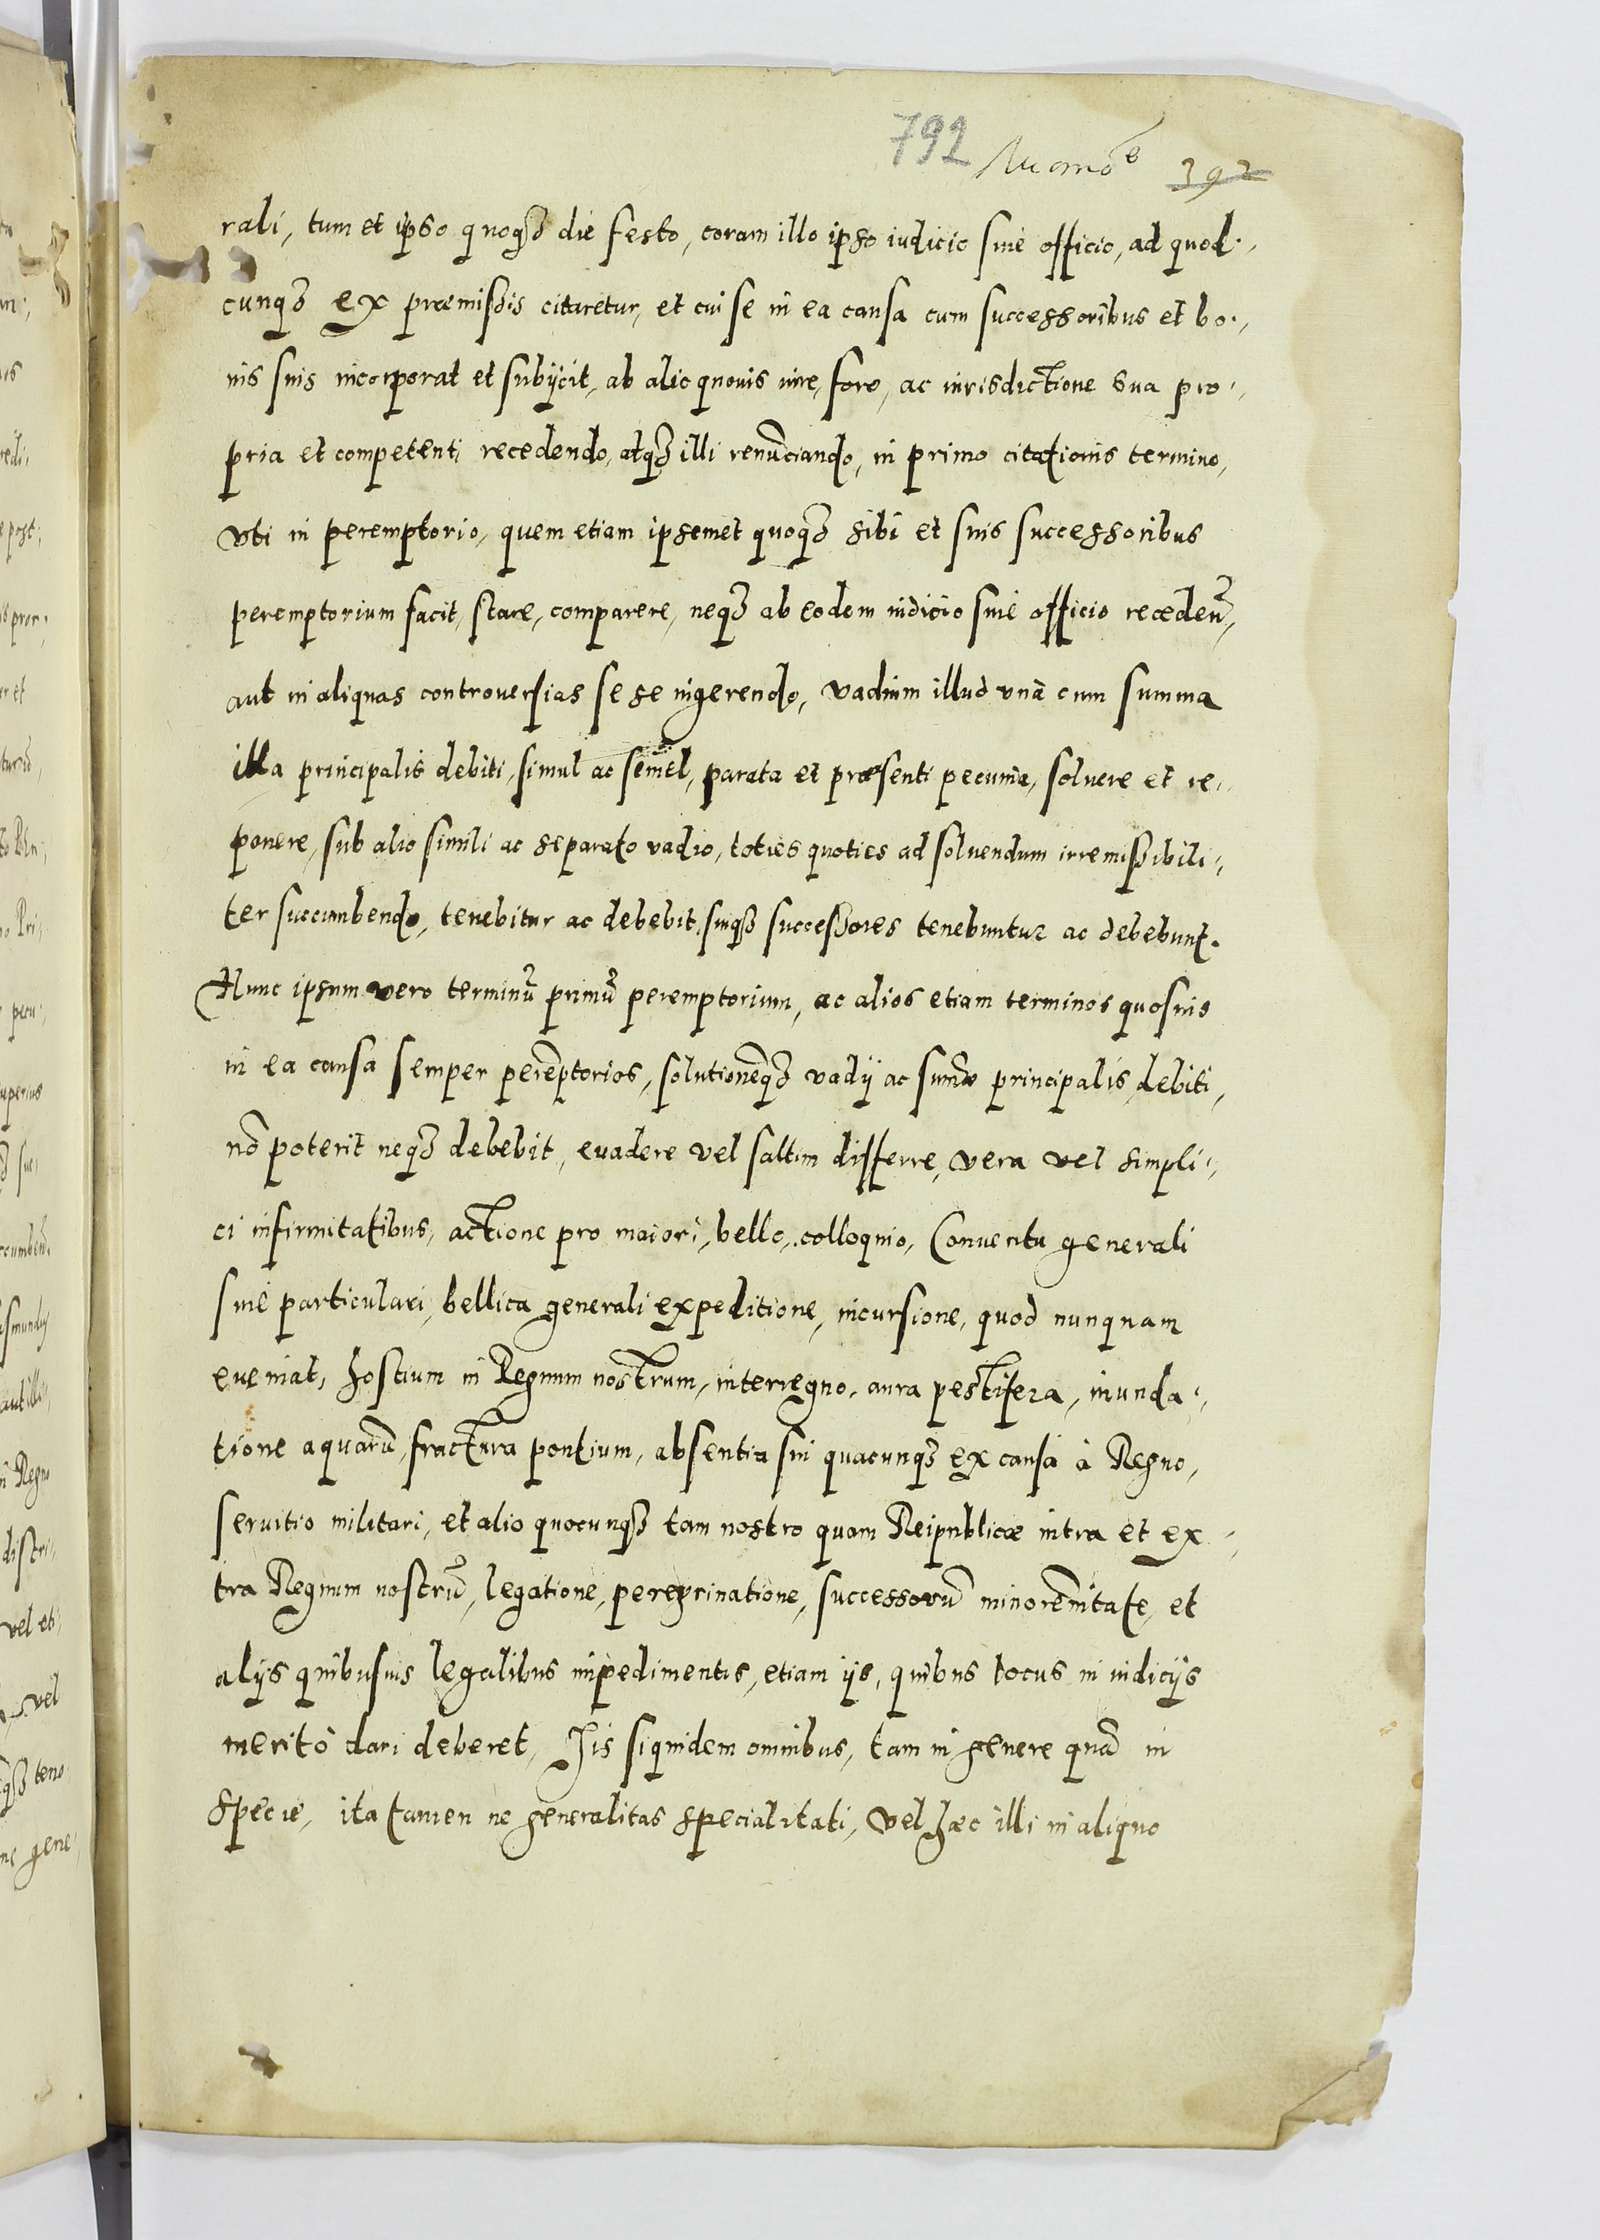 792 392
rali, tum et ipso quoqȝ die festo, coram illo ipso iudicio siue officio, ad quod-
cunqȝ ex præmissis citaretur, et cui se in ea causa cum successoribus et bo-
nis suis incorporat et subijcit, ab alio quouis iure, foro, ac iurisdictione sua pro-
pria et competenti recedendo, atqȝ illi renũciando, in primo citationis termino,
vti in peremptorio, quem etiam ipsemet quoqȝ sibi et suis successoribus
peremptorium facit, stare, comparere, neqȝ ab eodem iudicio siue officio recedeñ,
aut in aliquas controuersias sese ingerendo, vadium illud vnà cum summa
illa principalis debiti, simul ac semel, parata et præsenti pecunia, soluere et re-
ponere, sub alio simili ac separato vadio, toties quoties ad soluendum irremissibili-
ter succumbendo, tenebitur ac debebit, suiqȝ successores tenebuntur ac debebunt.
Hunc ipsum vero terminũ primũ peremptorium, ac alios etiam terminos quosuis
in ea causa semper perẽptorios, solutioneqȝ vadij ac sum̃æ principalis debiti,
nõ poterit neqȝ debebit, euadere vel saltim differre, vera vel simpli-
ci infirmitatibus, actione pro maiori, bello, colloquio, Conuentu generali
siue particulari, bellica generali expeditione, incursione, quod nunquam
eueniat, hostium in Regnum nostrum, interregno, aura pestifera, inunda-
tione aquarũ, fractura pontium, absentia sui quacunqȝ ex causa à Regno,
seruitio militari, et alio quocunqȝ tam nostro quam Reipublicæ intra et ex-
tra Regnum nostrũ, legatione, peregrinatione, successorũ minorẽnitate, et
alijs quibusuis legalibus impedimentis, etiam ijs, quibus locus in iudicijs
meritò dari deberet, His siquidem omnibus, tam in genere quã in
specie, ita tamen ne generalitas specialitati, vel hæc illi in aliquo